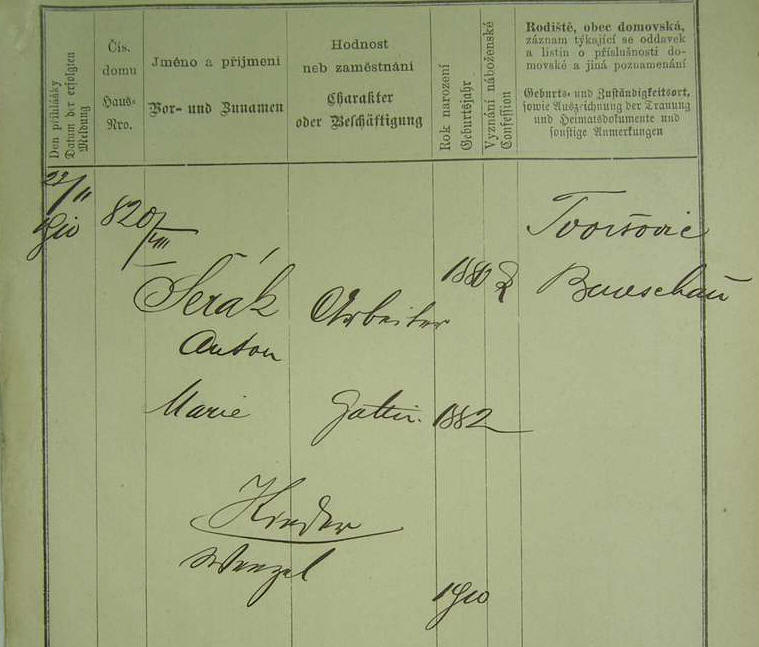 Den přihlášky
Datum der erfolgten
Meldung
Čís.
domu
Haus-
Nro.
Jméno a příjmení
Vor- und Zunamen
Hodnost
neb zaměstnání
Charakter
oder Beschäftigung
Rok narození
Geburtsjahr
Vyznání náboženské
Confession
Rodiště, obec domovská,
záznam týkající se oddavek
a listin o příslušnosti do-
movské a jiná poznamenání
Geburts- und Zuständigkeitsort,
sowie Aufzeichnung der Trauung
und Heimatsdokumente und
sonstige Anmerkungen
22/11
1910
820/VIII
Tvoršovic
Šerák Arbeiter 1880 Beneschau
Anton
Marie Gattin. 1882
Kinder
Wenzel
1910